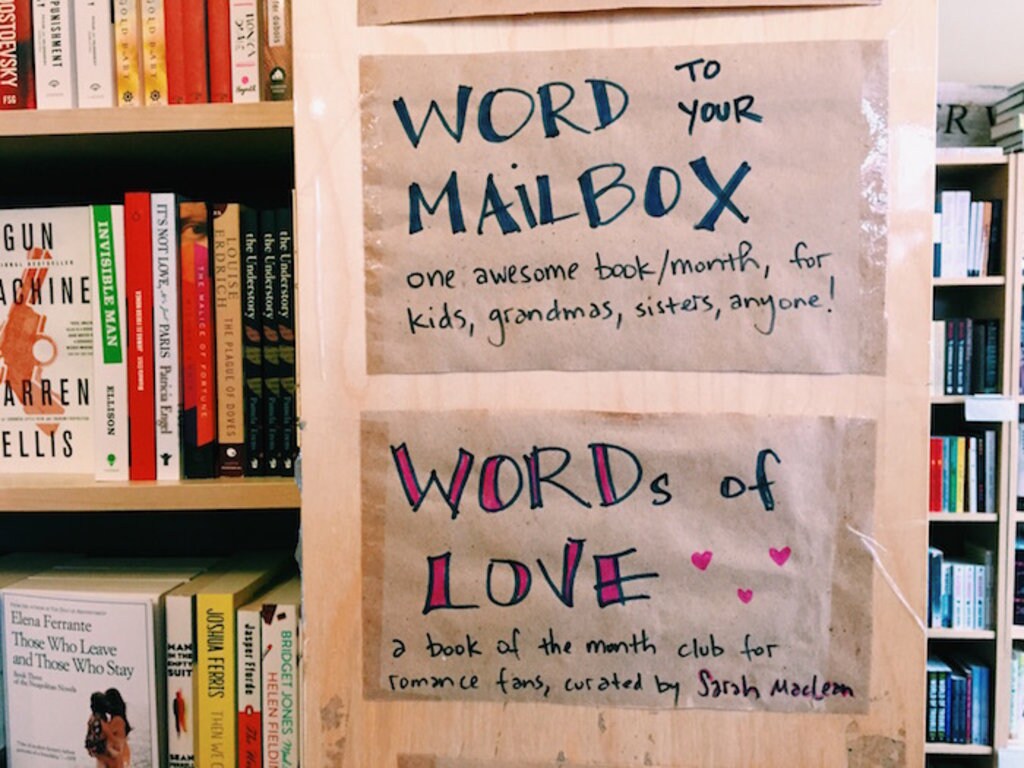 WORD TO YOUR
MAILBOX
one awesome book/month, for
kids, grandmas, sisters, anyone!
WORDs of
LOVE
a book of the month club for
romance fans, curated by Sarah MacLean
DOSTOEVSKY
FSG
PUNISHMENT
GUN
MACHINE
WARREN
ELLIS
INVISIBLE MAN
ELLISON
IT'S NOT LOVE, it's just PARIS Patricia Engel
THE MALICE OF FORTUNE
LOUISE ERDRICH THE PLAGUE OF DOVES
the Understory
the Understory
the Understory
Elena Ferrante
Those Who Leave
and Those Who Stay
MAN IN THE EMPTY SUIT
SEAN
JOSHUA FERRIS THEN WE C
Jasper Fforde
BRIDGET JONES
HELEN FIELDING